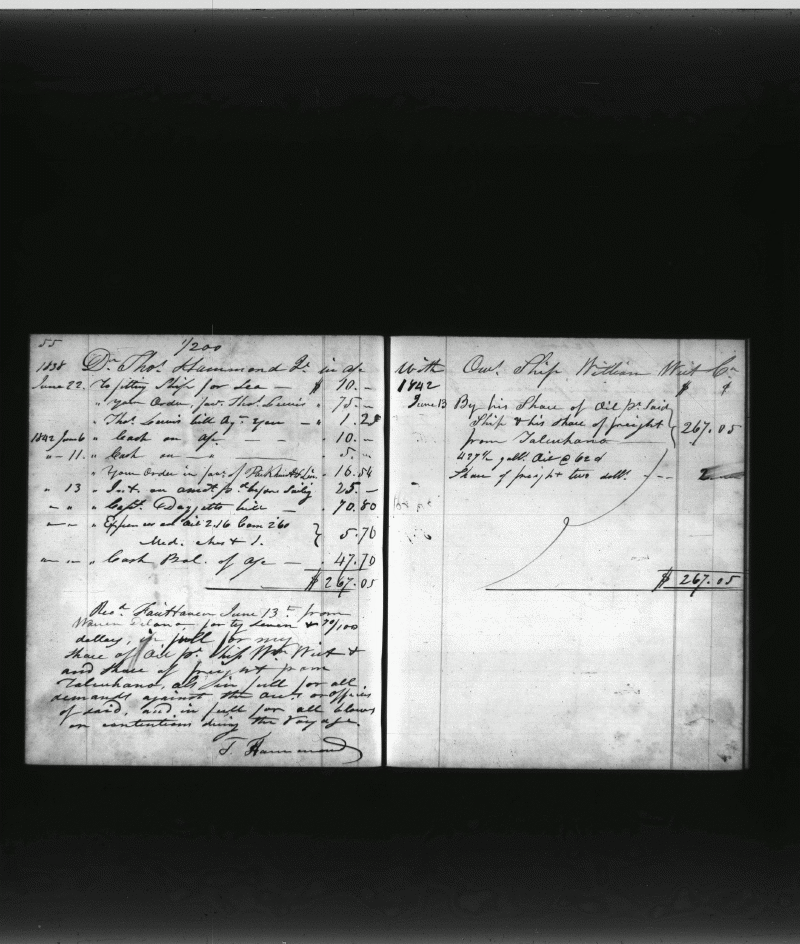 55
1/200
1838 Dr Thos. Hammond Jr. in a/c
June 22. To fitting Ship for Sea — $ 10.–
" your Order, fav. Thos. Lewis " 75.–
" Thos. Lewis bill agt. you — " 1.28
1842 Jun 6 " Cash on a/c — — " 10.–
" – 11. " Cash on — " — " 5. –
" Your Order in favr. of & " 16.54
" 13 " Int. on amot pd. before Sailg 25. –
" – " " Capt. Daggetts bill — " 70.80
" – " " Expenses on Oil 2.16 Com 260
Med. Ches t 1. } 5.76
" – " " Cash Bal. of a/c — " 47.70
$ 267.05
Recd. FairHaven June 13th from
Warren Delano forty seven & 70/100
dollars, in full for my
share of Oil pr. Ship Wm Wirt &
and share of freight from
Talcuhano, also in full for all
demands against the owrs or officers
of said, and in full for all blows
or contentions during the Voyage
T. Hammond
With Owr. Ship William Wirt Cr.
1842 $ ¢
June 13 By his Share of Oil pr. Said
Ship & his share of freight } 267.05
from Talcuhano
427 1/2 galls. Oil @ 62 ¢
Share of freight two dolls. - - - 2
$ 267.05